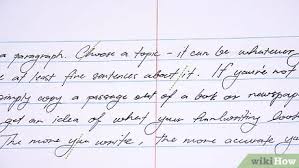 a paragraph. Choose a topic - it can be whatever
e at least five sentences about it. If you're not
simply copy a passage out of a book or newspap
get an idea of what your handwriting looks
The more you write, the more accurate y
wikiHow